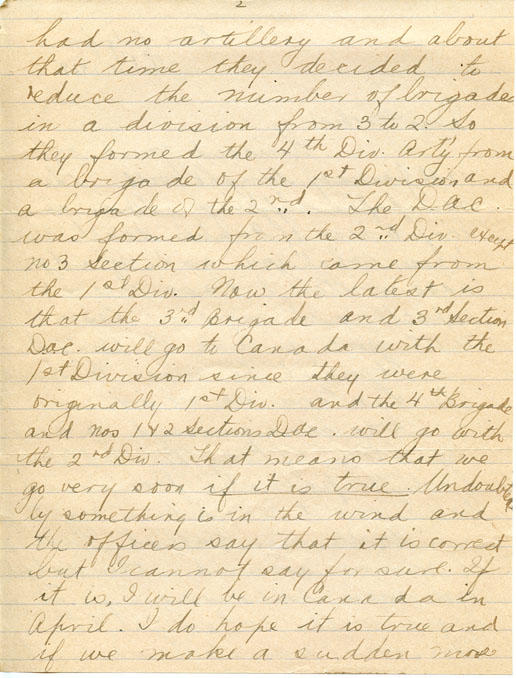 2
had no artillery and about
that time they decided to
reduce the number of brigades
in a division from 3 to 2. So
they formed the 4th Div. Arty from
a brigade of the 1st Division and
a brigade of the 2nd. The DAC.
was formed from the 2nd Div. except
no 3 Section which came from
the 1st Div. Now the latest is
that the 3rd Brigade and 3rd Section
Dac. will go to Canada with the
1st Division since they were
originally 1st Div. and the 4th Brigade
and nos 1 & 2 Sections Dac. will go with
the 2nd Div. That means that we
go very soon if it is true. Undoubted
ly something is in the wind and
the officers say that it is correct
but I cannot say for sure. If
it is, I will be in Canada in
April. I do hope it is true and
if we make a sudden move